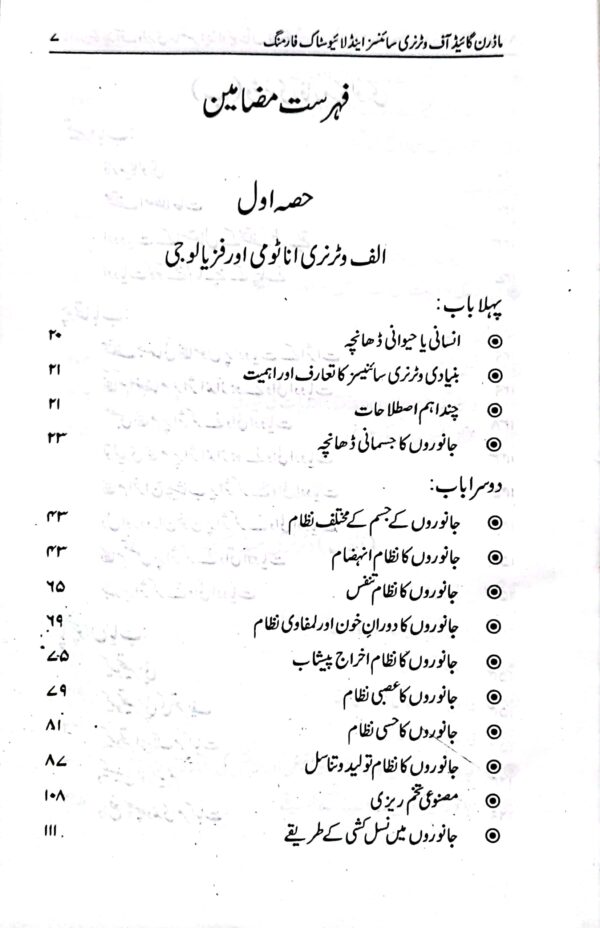 ماڈرن گائیڈ آف وٹرنری سائنسز اینڈ لائیوسٹاک فارمنگ ۷
فہرست مضامین
حصہ اول
الف وٹرنری اناٹومی اور فزیالوجی
پہلا باب:
انسانی یا حیوانی ڈھانچہ ۲۰
بنیادی وٹرنری سائنیسز کا تعارف اور اہمیت ۲۱
چند اہم اصطلاحات ۲۱
جانوروں کا جسمانی ڈھانچہ ۲۳
دوسرا باب:
جانوروں کے جسم کے مختلف نظام ۴۳
جانوروں کا نظام انہضام ۴۳
جانوروں کا نظام تنفس ۶۵
جانوروں کا دورانِ خون اور لمفاوی نظام ۶۹
جانوروں کا نظام اخراج پیشاب ۷۵
جانوروں کا عصبی نظام ۷۹
جانوروں کا حسی نظام ۸۱
جانوروں کا نظام تولید و تناسل ۸۷
مصنوعی تخم ریزی ۱۰۸
جانوروں میں نسل کشی کے طریقے ۱۱۱